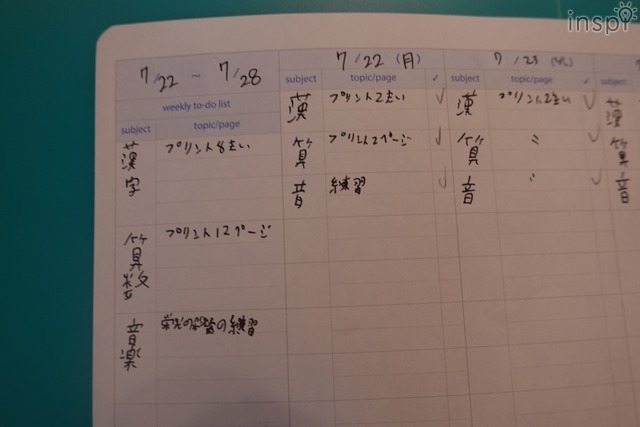 inspi
7/22 ~ 7/28
weekly to-do list
subject topic/page
漢字 プリント8まい
算数 プリント12ページ
音楽 の練習
7/22 (月)
subject topic/page ✓
漢 プリント2まい ✓
算 プリント2ページ ✓
音 練習 ✓
7/23 (火)
subject topic/page ✓
漢 プリント2まい ✓
算 〃 ✓
音 〃 ✓
subject
漢
算
音